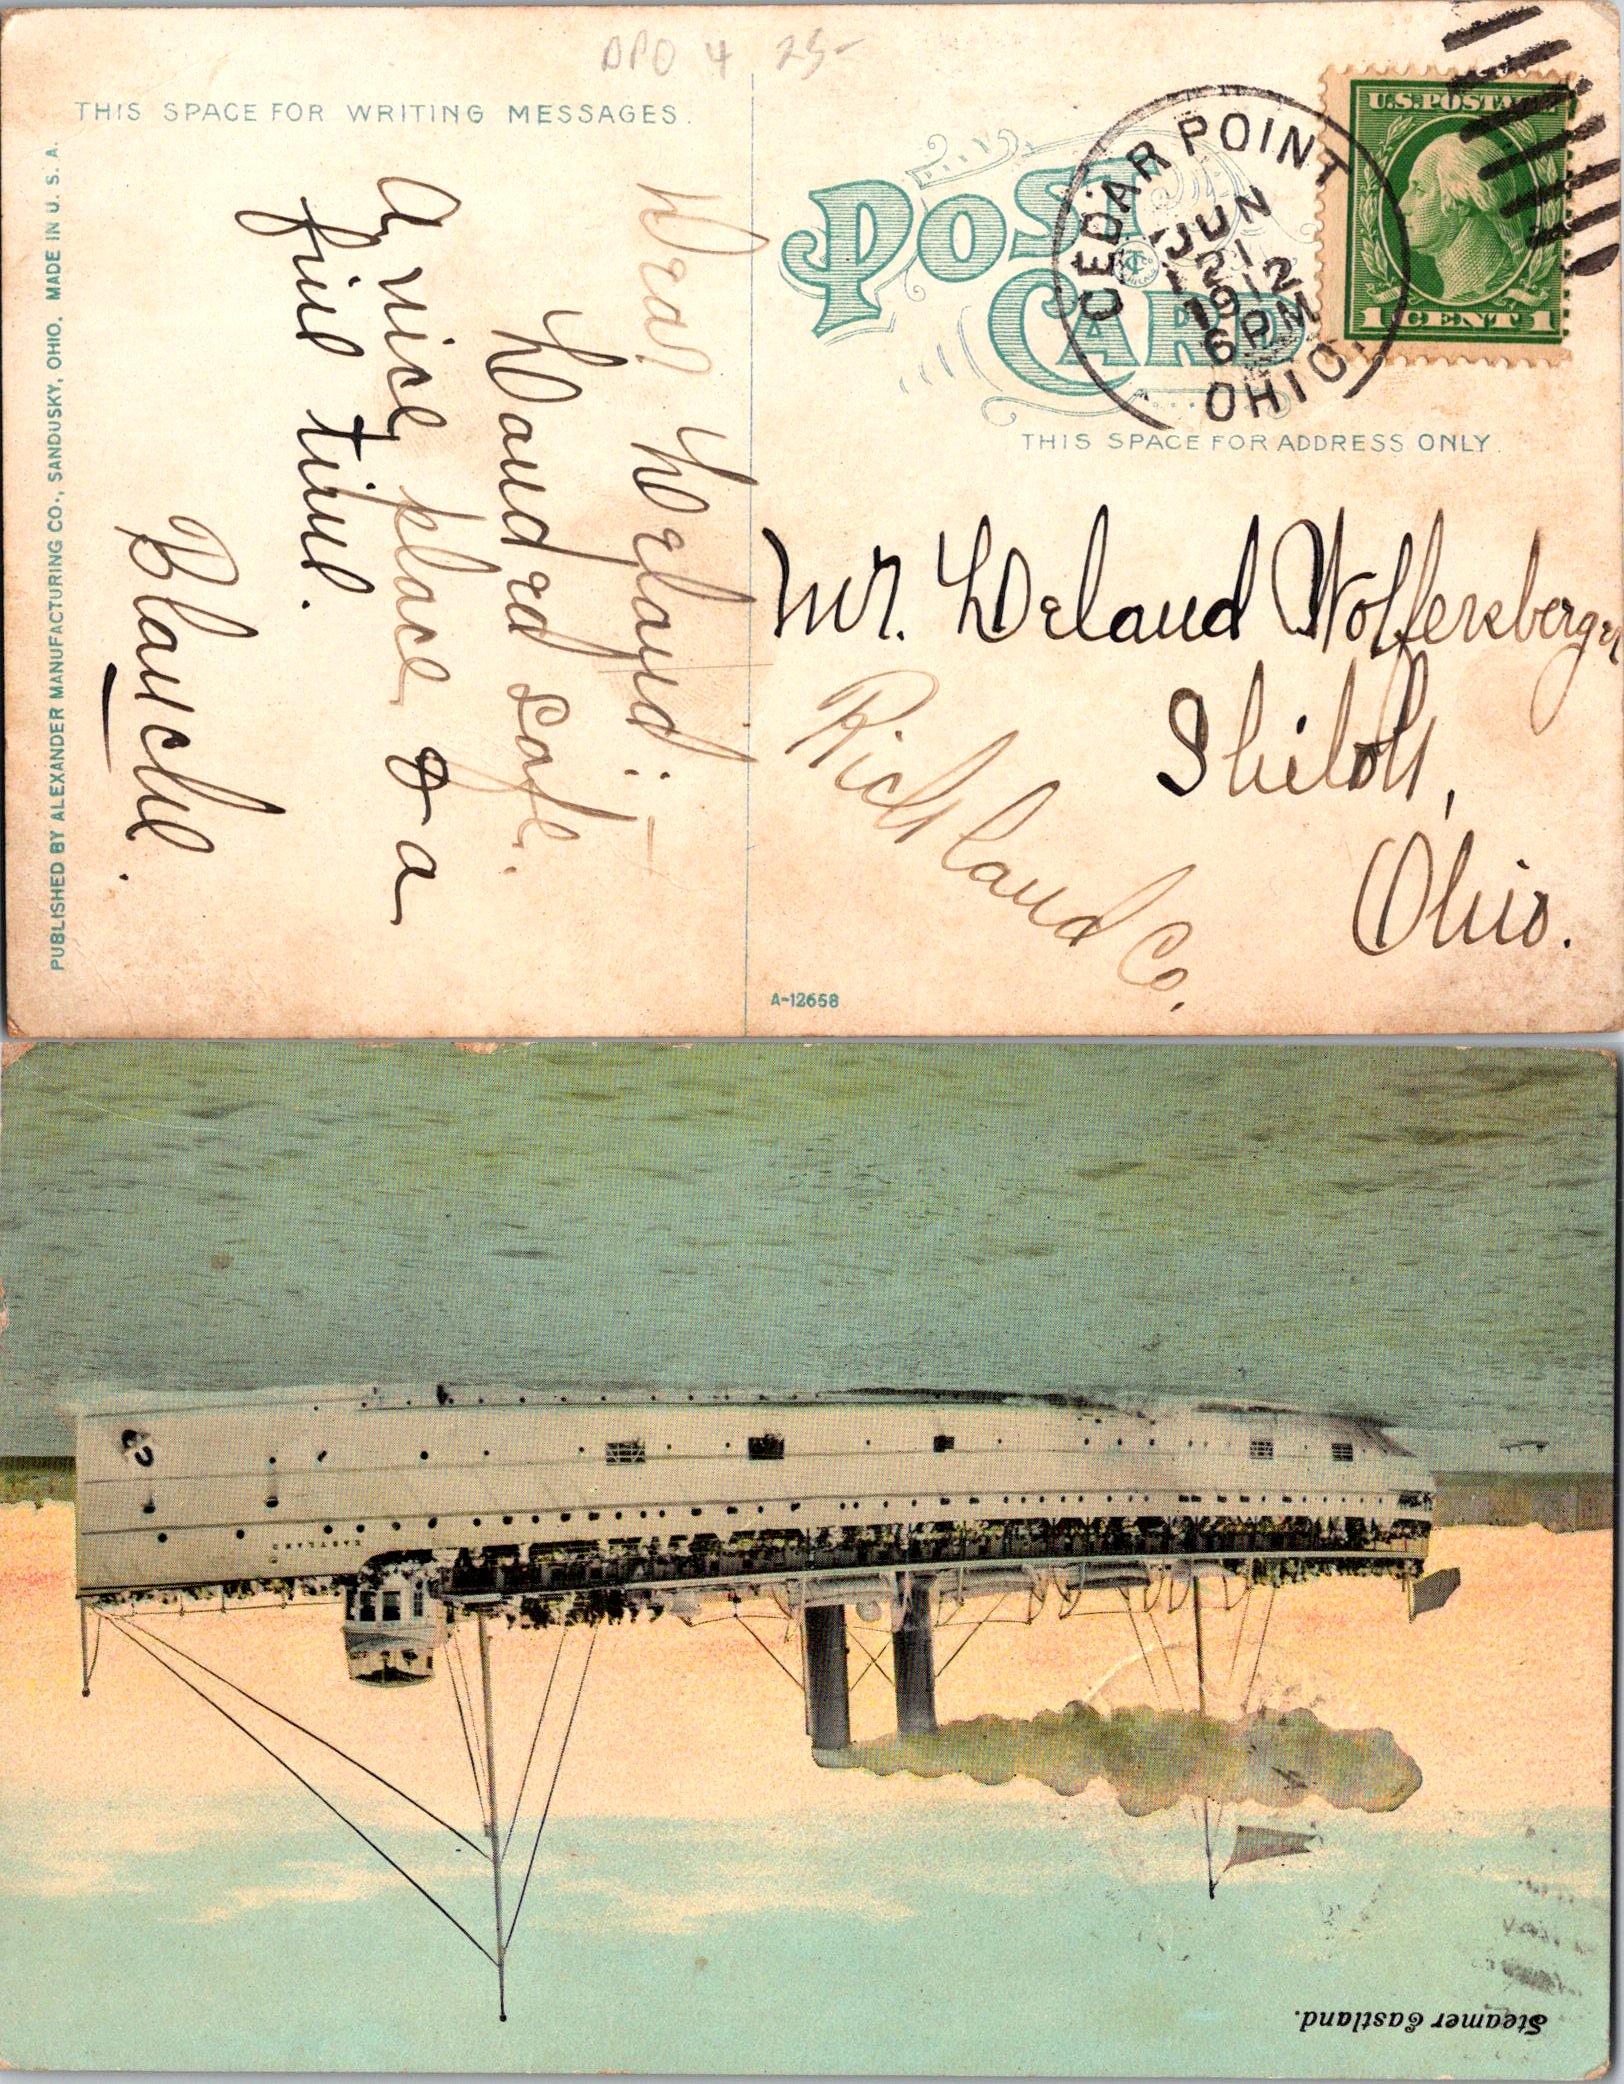 DPO 4 25-
THIS SPACE FOR WRITING MESSAGES.
POST CARD
CEDAR POINT
JUN
21
1912
6 PM
OHIO.
U.S. POSTAGE
1 CENT 1
THIS SPACE FOR ADDRESS ONLY.
PUBLISHED BY ALEXANDER MANUFACTURING CO., SANDUSKY, OHIO, MADE IN U. S. A.
Dear Leland:-
Landed safe.
A nice place & a
fine time.
Blanche.
Mr. Leland Wolfersberger
Shiloh,
Ohio.
Richland Co.
A-12658
EASTLAND
Steamer Eastland.